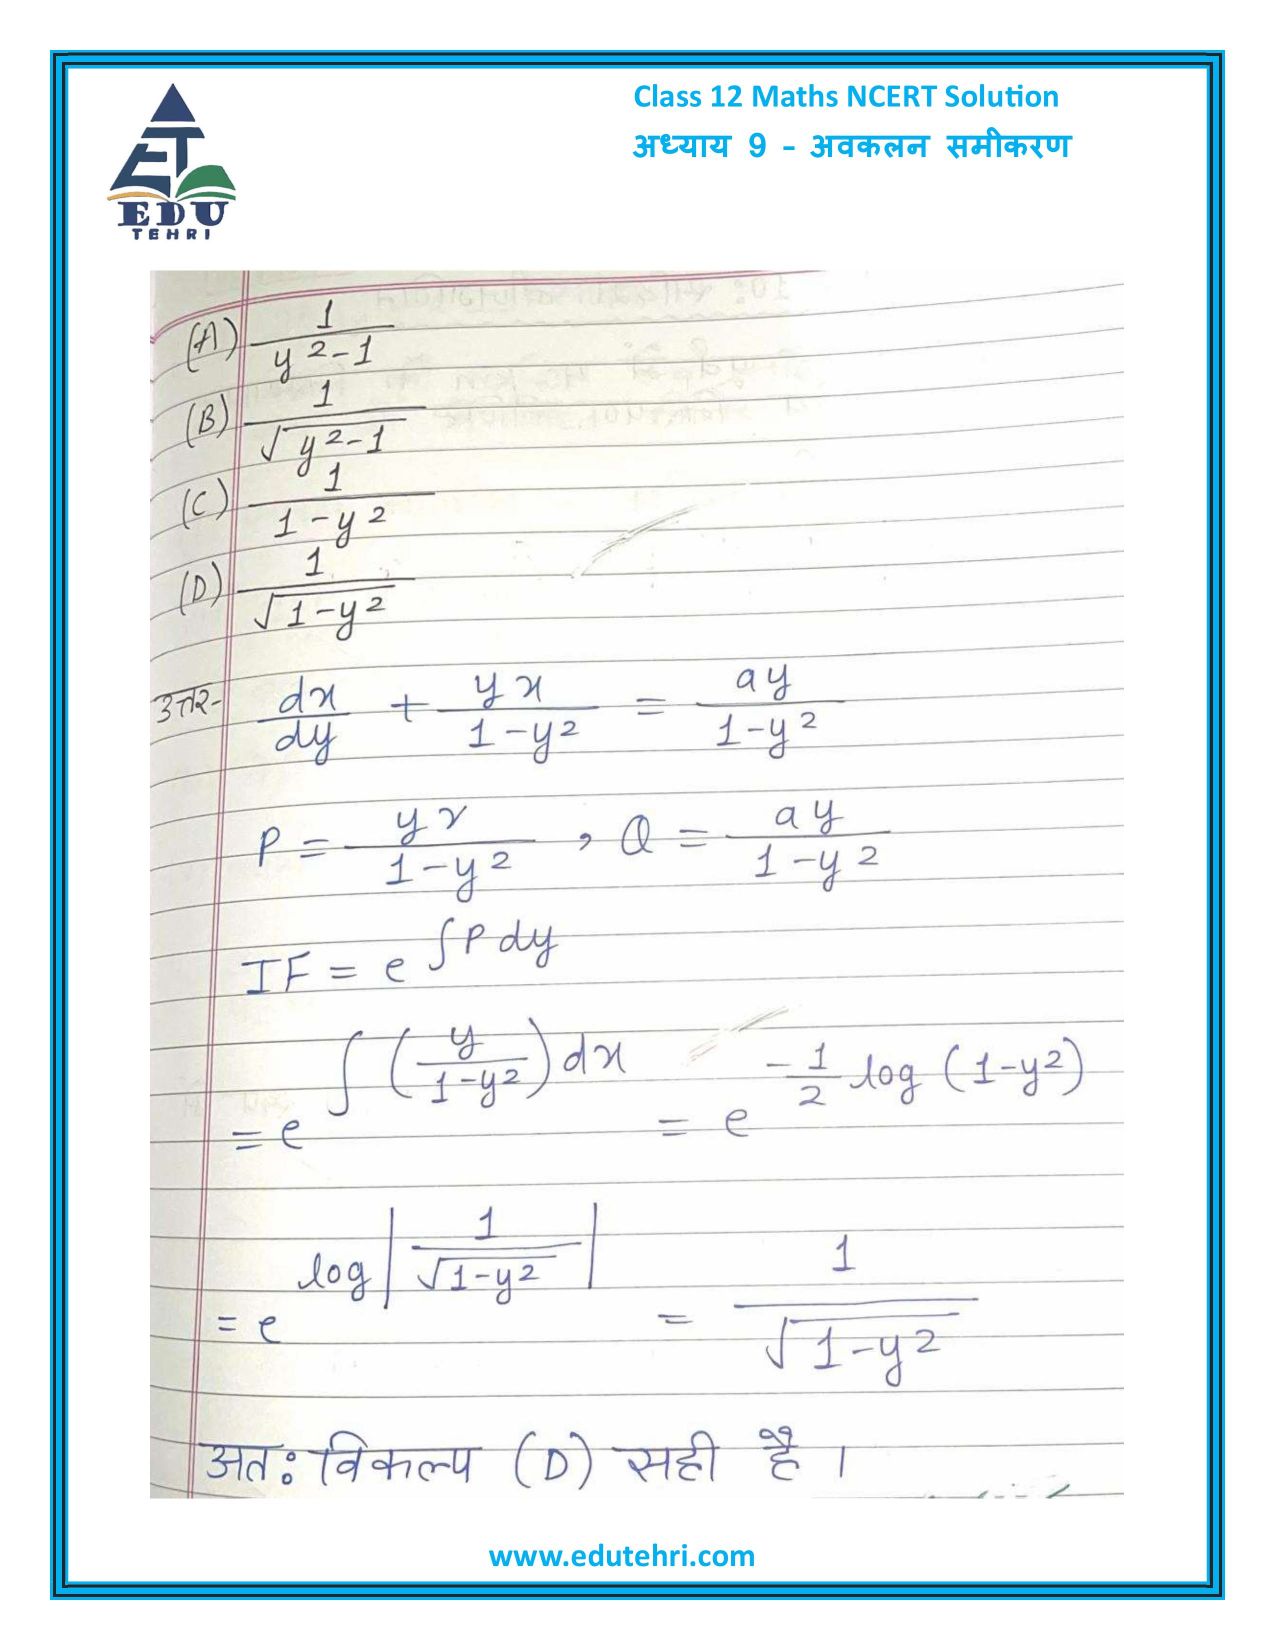 Class 12 Maths NCERT Solution
अध्याय 9 - अवकलन समीकरण
EDU
TEHRI
(A) 1/(y²-1)
(B) 1/√(y²-1)
(C) 1/(1-y²)
(D) 1/√(1-y²)
उत्तर- dx/dy + yx/(1-y²) = ay/(1-y²)
P = yx/(1-y²) , Q = ay/(1-y²)
IF = e^(∫P dy)
= e^(∫(y/(1-y²))dx) = e^(-1/2 log(1-y²))
= e^(log|1/√(1-y²)|) = 1/√(1-y²)
अत: विकल्प (D) सही है ।
www.edutehri.com